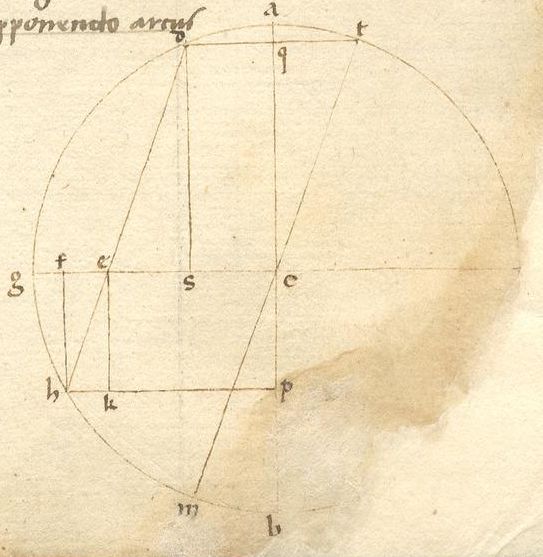 pponendo arcus
a
t
q
f
e
g
s
c
h
k
p
m
b